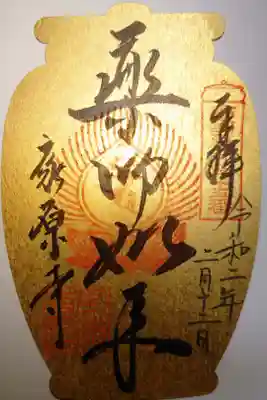 奉拝
令和二年
二月十二日
薬師如来
家原寺